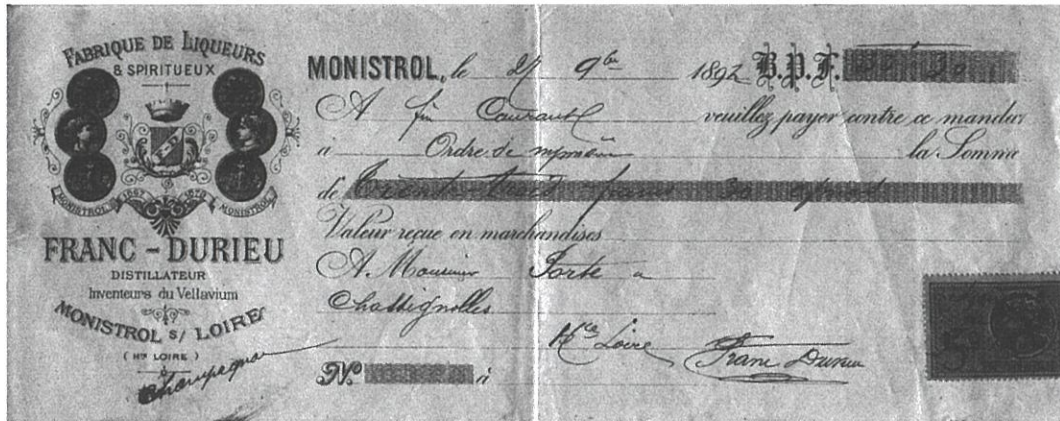 FABRIQUE DE LIQUEURS
& SPIRITUEUX
MONISTROL 1867 1878 MONISTROL
FRANC - DURIEU
DISTILLATEUR
Inventeurs du Vellavium
MONISTROL S/ LOIRE
(HTE LOIRE)
Champagnac
MONISTROL, le 27 9bre 1892 B.P.F.
A fin Courant veuillez payer contre ce mandat
à Ordre de la Somme
de Trente francs 30
Valeur reçue en marchandises
A Monsieur Porte a
Chassignolles
Hte Loire
Franc Durieu
No à